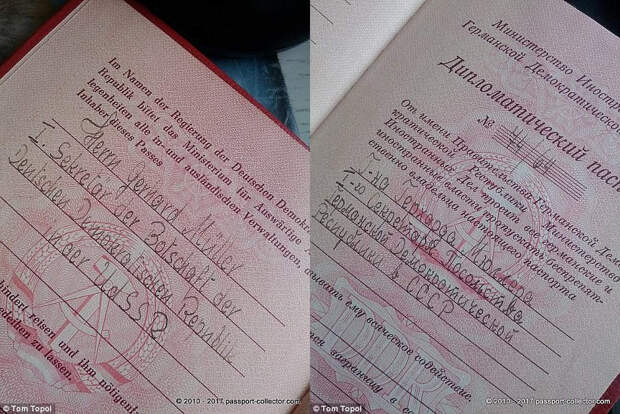 Im Namen der Regierung der Deutschen Demokr
Republik bittet das Ministerium für Auswärtige
legenheiten alle in- und ausländischen Verwaltungen,
Inhaber dieses Passes
Herrn Gerhard Müller
I. Sekretär der Botschaft der
Deutschen Demokratischen Republik
in der UdSSR
hindert reisen und ihm nötigenf
edeihen zu lassen.
© Tom Topol
© 2010 - 2017 passport-collector.com
Министерство Иностра
Германской Демократической
Дипломатический пас
№ 44 64
От имени Правительства Германской Демо
кратической Республики Министерство
Иностранных Дел просит все германские и
иностранные власти пропускать беспрепят
ственно владельца настоящего паспорта
Г-на Герхарда Мюллера
I-го Секретаря Посольства
Германской Демократической
Республики в СССР
ему всяческое содействие.
© Tom Topol
© 2010 - 2017 passport-collector.com